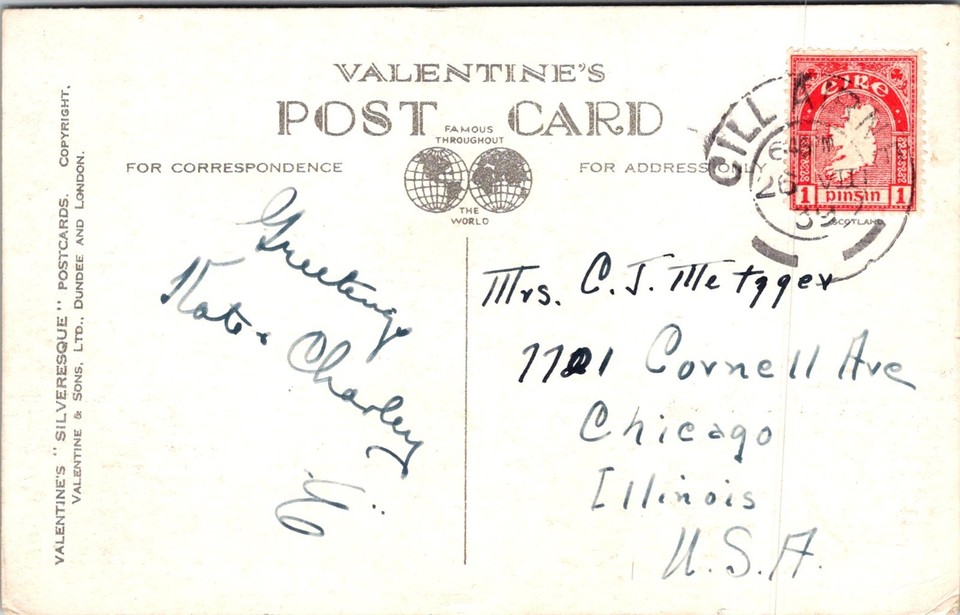 VALENTINE'S
POST CARD
FAMOUS
THROUGHOUT
THE
WORLD
FOR CORRESPONDENCE
FOR ADDRESS ONLY
VALENTINE'S "SILVERESQUE" POSTCARDS. COPYRIGHT.
VALENTINE & SONS, LTD., DUNDEE AND LONDON.
Greetings
Kate & Charley
E
Mrs. C. J. Metzger
7721 Cornell Ave
Chicago
Illinois
U.S.A.
éire
1 pinsin 1
CILL
26 VIII
39
SCOTLAND